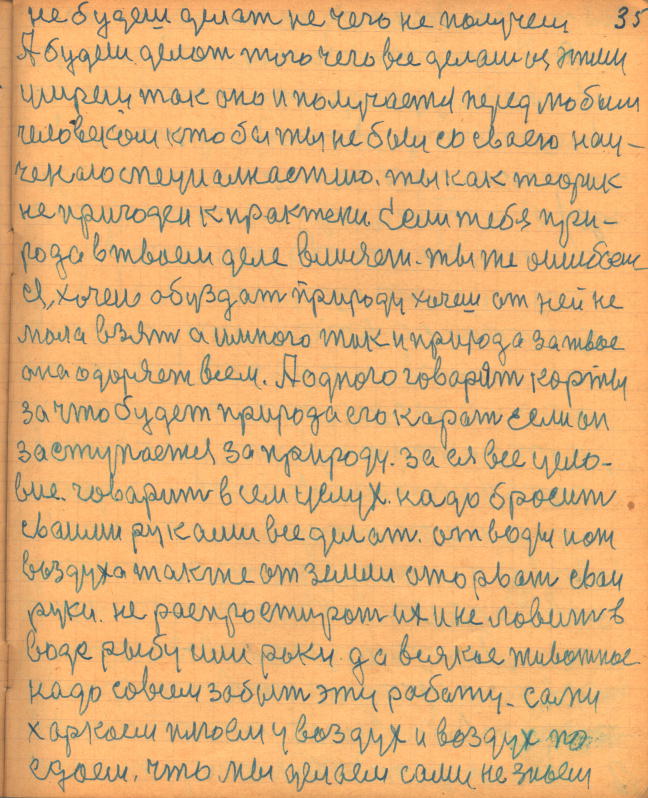 не будеш делат не чего не получем 35
А будем делот того чего все делаш он этим
умрем так оно и получается перед любым
человеком кто бы ты не был со своею нау-
ченало специалнастию. ты как теорик
не пригоден к практени Если тебя при-
рода в твоем деле влияет. ты же ошибсем
ся, хочеш обуздат природу хочеш от ней не
мала взят а много так и природа за твое
она одоряет всем. А одного говарят коръты
за что будет природа его карат если он
заступается за природу. за ея все цело-
вие. говарит всем целух. надо бросит
сваими руками все делат. от воды и от
воздуха также от земли оторват сваи
руки. не распростират их и не ловит в
воде рыбу или раки. да всякое животное.
надо совсем забыт эту работу. сами
харкаем плюем у воздух и воздух по
едаем, что мы делаем сами не знаем